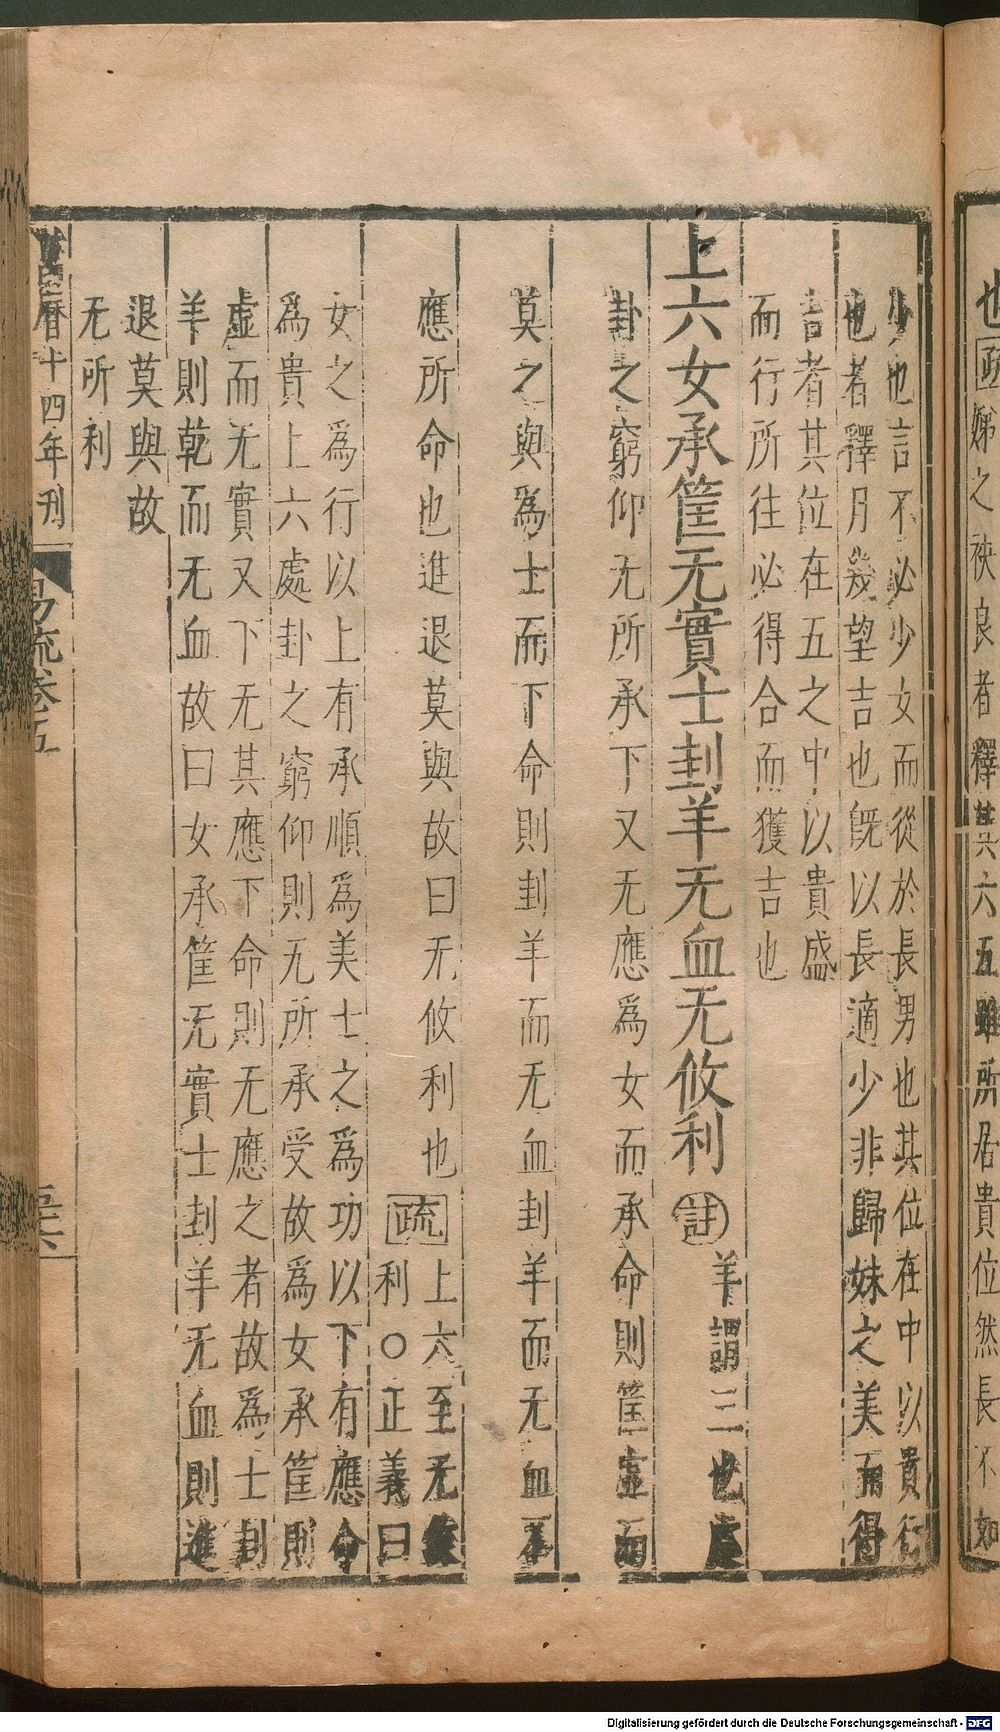 也疏娣之袂良者釋其六五雖所居貴位然長不如
少也言不必少女而從於長男也其位在中以貴行
也者釋月幾望吉也旣以長適少非歸妹之美而得
吉者其位在五之中以貴盛
而行所往必得合而獲吉也
上六女承筐无實士刲羊无血无攸利註羊謂三也處
卦之窮仰无所承下又无應爲女而承命則筐虛而
莫之與爲士而下命則刲羊而无血刲羊而无血不
應所命也進退莫與故曰无攸利也疏上六至无攸
利○正義曰
女之爲行以上有承順爲美士之爲功以下有應命
爲貴上六處卦之窮仰則无所承受故爲女承筐則
虛而无實又下无其應下命則无應之者故爲士刲
羊則乾而无血故曰女承筐无實士刲羊无血則進
退莫與故
无所利
萬曆十四年刊
易疏卷五
Digitalisierung gefördert durch die Deutsche Forschungsgemeinschaft - DFG